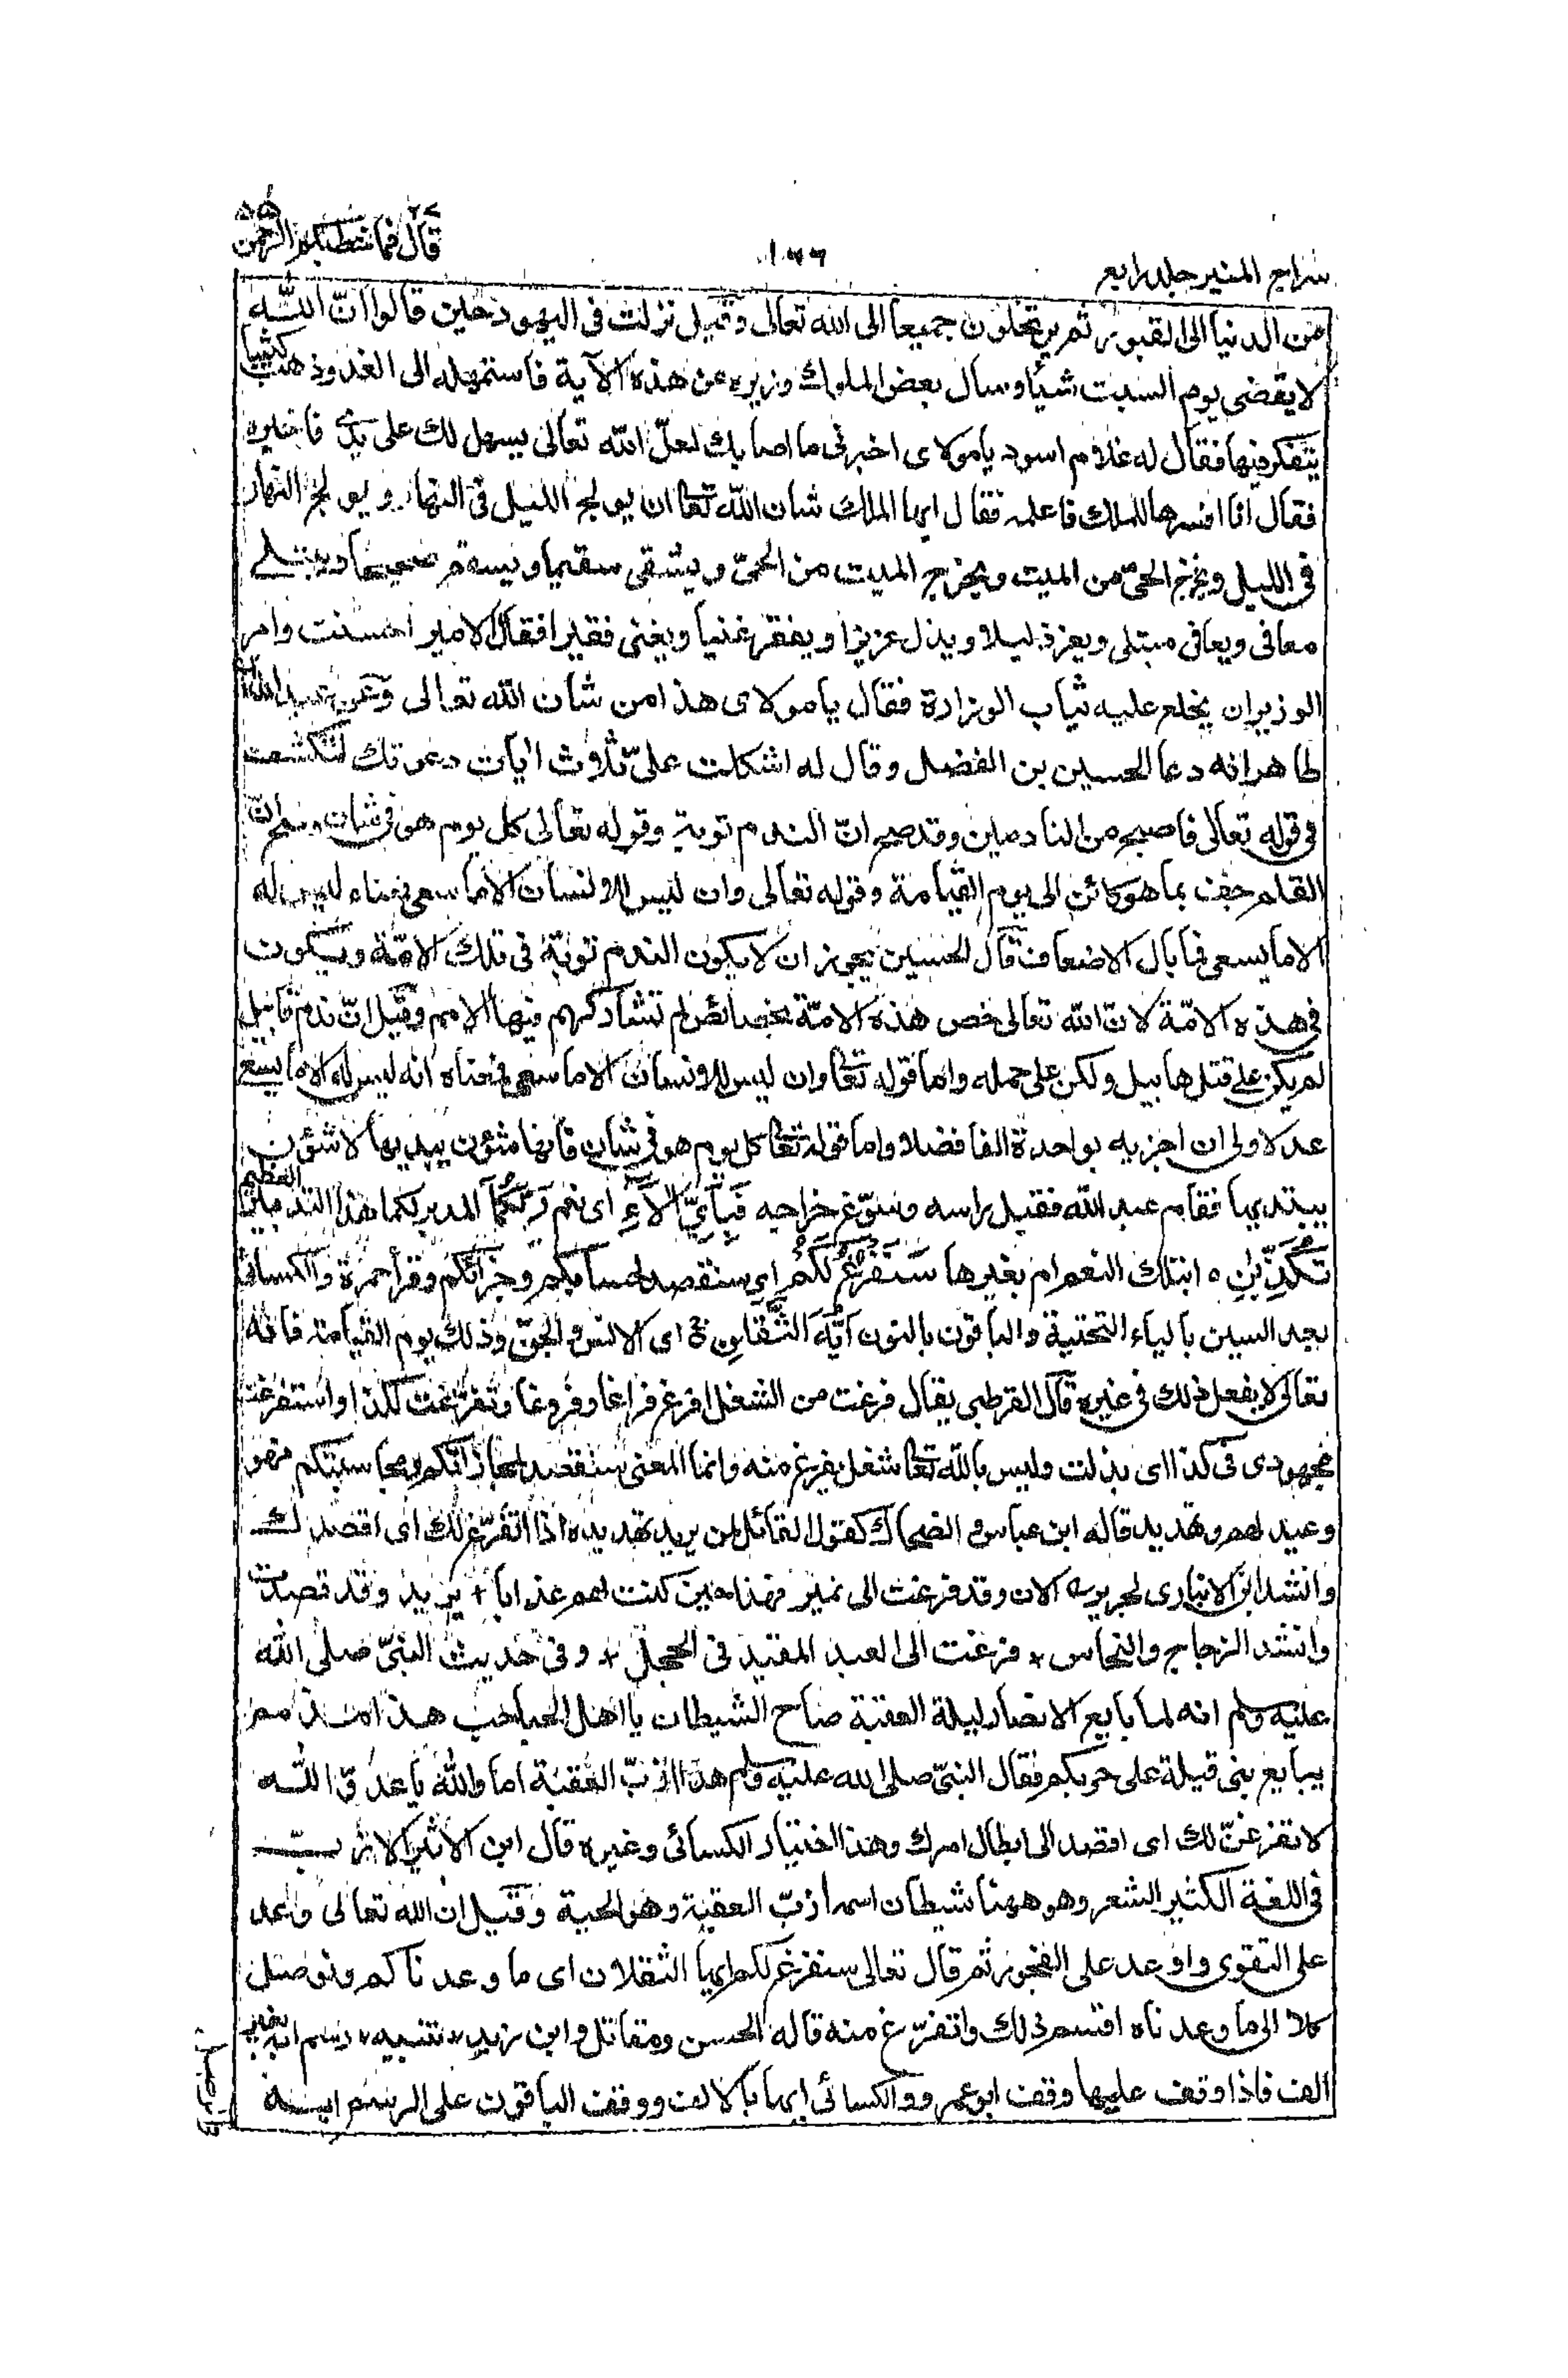 سراج المنير جلد رابع
١٦٦
قال فما خطبكم ٢٧ الرحمن ٥٥
من الدنيا الى القبور ثم يرتحلون جميعا الى الله تعالى وقيل نزلت فى اليهود حين قالوا انّ اللّٰه
لا يقضى يوم السبت شيئا وسال بعض الملوك وزيره عن هذه الآية فاستمهله الى الغد وذهب كئيبا
يتفكر فيها فقال له غلام اسود يا مولاى اخبرنى ما اصابك لعلّ اللّٰه تعالى يسهل لك على يدى فاخبره
فقال انا افسرها للملك فاعلمه فقال ايها الملك شان اللّٰه تعا ان يولج الليل فى النهار ويولج النهار
فى الليل ويخرج الحىّ من الميت ويخرج الميت من الحىّ ويشفى سقيما ويسقم سليما ويبتلى
معافى ويعافى مبتلى ويعز ذليلا ويذل عزيزا ويفقر غنيا ويغنى فقيرا فقال الامير احسنت وامر
الوزير ان يخلع عليه ثياب الوزارة فقال يا مولاى هذا من شان اللّٰه تعالى وعن عبد اللّٰه بن
طاهر انه دعا الحسين بن الفضل وقال له اشكلت علىّ ثلاث اٰيات دعوتك لتكشفها
فى قوله تعالى فاصبح من النادمين وقد صح انّ الندم توبة وقوله تعالى كل يوم هو فى شان وصح انّ
القلم جف بما هو كائن الى يوم القيامة وقوله تعالى وان ليس للانسان الا ما سعى معناه ليس له
الا ما يسعى فما بال الاضعاف فقال الحسين يجوز ان لا يكون الندم توبة فى تلك الامّة ويكون
فى هذه الامّة لان اللّٰه تعالى خص هذه الامّة بخصائص لم تشاركهم فيها الامم وقيل انّ ندم قابيل
لم يكن على قتل هابيل ولكن على حمله واما قوله تعا وان ليس للانسان الا ما سعى فمعناه انه ليس له الا ما يسعى
عدلا ولى ان اجزيه بواحدة الفا فضلا واما قوله تعا كل يوم هو فى شان فانها شؤن يبديها لا شؤن
يبتديها فقام عبد اللّٰه فقبل راسه وسوّغ خراجه فَبِاَيِّ اٰلَاۤءِ اى نعم رَبِّكُمَا المدبر لكما هذا التدبير العظيم
تُكَذِّبٰنِ ٥ ابتلك النعم ام بغيرها سَنَفْرُغُ لَكُمْ اى سنقصد لحسابكم وجزائكم وقرأ حمزة والكسائى
بعد السين بالياء التحتية والباقون بالنون اَيُّهَ الثَّقَلٰنِ ج اى الانس والجنّ وذلك يوم القيامة فانه
تعالى لا يفعل ذلك فى غيره قال القرطبى يقال فرغت من الشغل افرغ فراغا وفروغا وتفرّغت لكذا واستفرغت
مجهودى فى كذا اى بذلت وليس باللّٰه تعا شغل يفرغ منه وانما المعنى سنقصد لمجازاتكم ومحاسبتكم فهو
وعيد لهم وتهديد قاله ابن عباس والضحاك كقول القائل لمن يريد تهديده اذا اتفرّغ لك اى اقصد لك
وانشد ابن الانبارى لجرير سه الان وقد فرغت الى نمير فهذا حين كنت لهم عذابا + يريد وقد قصدت
وانشد الزجاج والنحاس + فرغت الى العبد المقيد فى الحجل + وفى حديث النبىّ صلى اللّٰه
عليه وسلم انه لما بايع الانصار ليلة العقبة صاح الشيطان يا اهل الجباجب هذا مذمم
يبايع بنى قيلة على حربكم فقال النبىّ صلى اللّٰه عليه وسلم هذا ازبّ العقبة اما واللّٰه يا عدوّ اللّٰه
لاتفرغنّ لك اى اقصد الى ابطال امرك وهذا اختيار الكسائى وغيره قال ابن الاثير الازبّ
فى اللغة الكثير الشعر وهو ههنا شيطان اسمه ازبّ العقبة وهو الحية وقيل ان اللّٰه تعالى وعد
على التقوى واوعد على الفجور ثم قال تعالى سنفرغ لكم ايها الثقلان اى ما وعدناكم ونوصل
كلا الى ما وعدناه اقسم ذلك واتفرّغ منه قاله الحسن ومقاتل وابن زيد "تنبيه" رسم ايه بغير
الف فاذا وقف عليها وقف ابو عمرو والكسائى ايها بالالف ووقف الباقون على الرسم ايه